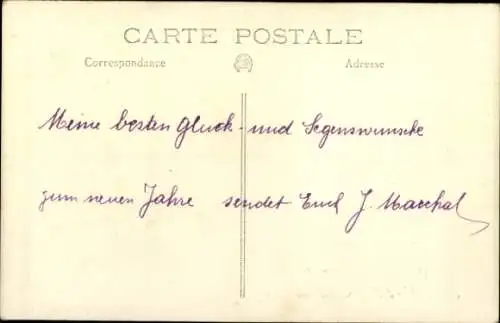 CARTE POSTALE
Correspondance Adresse
Meine besten Glück- und Segenswünsche
zum neuen Jahre sendet Euch J. Marchal